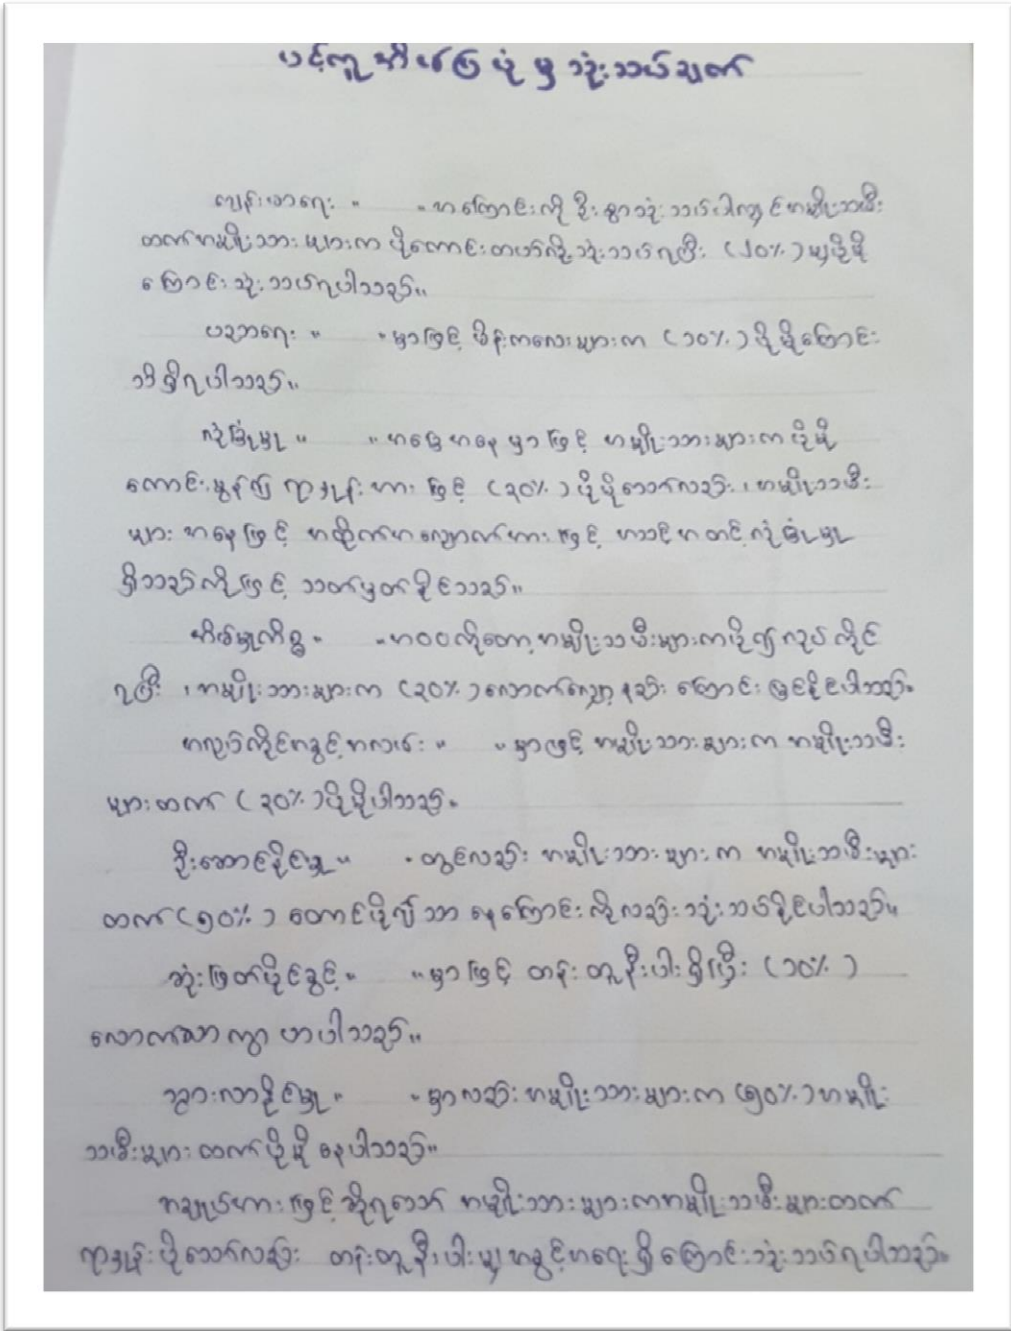 ပင့်ကူအိမ်ပြပုံမှ သုံးသပ်ချက်
ကျန်းမာရေး " " အကြောင်းကို ဦးစွာသုံးသပ်ပါလျှင် အမျိုးသမီး
ထက် အမျိုးသားများက ပိုကောင်းတယ်လို့ သုံးသပ်ရပြီး (၂၀%) မျှပိုမို
ကြောင်း သုံးသပ်ရပါသည်။
ပညာရေး " " မှာဖြင့် မိန်းကလေးများက (၁၀%) ပိုမိုကြောင်း
သိရှိရပါသည်။
လုံခြုံမှု " " အခြေအနေမှာဖြင့် အမျိုးသားများက ပိုမို
ကောင်းမွန်၍ ရာနှုန်းအားဖြင့် (၃၀%) ပိုမိုသော်လည်း၊ အမျိုးသမီး
များ အနေဖြင့် အထိုက်အလျောက်အားဖြင့် အသင့်အတင့်လုံခြုံမှု
ရှိသည်လို့ဖြင့် သတ်မှတ်နိုင်သည်။
အိမ်မှုကိစ္စ " " အဝဝကိုတော့ အမျိုးသမီးများကပို၍ လုပ်ကိုင်
ရပြီး ၊ အမျိုးသားများက (၃၀%) လောက်လျော့နည်းကြောင်း မြင်နိုင်ပါသည်။
အလုပ်ကိုင်အခွင့်အလမ်း " " မှာဖြင့် အမျိုးသားများက အမျိုးသမီး
များထက် (၃၀%) ပိုမိုပါသည်။
ဦးဆောင်နိုင်မှု " " တွင်လည်း အမျိုးသားများက အမျိုးသမီးများ
ထက် (၅၀%) တောင်ပိုလို့သာနေကြောင်းကိုလည်း သုံးသပ်နိုင်ပါသည်။
ဆုံးဖြတ်ပိုင်ခွင့် " " မှာဖြင့် တန်းတူနီးပါးရှိပြီး (၁၀%)
လောက်သာကွာဟပါသည်။
သွားလာနိုင်မှု " " မှာလည်း အမျိုးသားများက (၅၀%) အမျိုး
သမီးများထက် ပိုမိုနေပါသည်။
အချုပ်အားဖြင့်ဆိုရသော် အမျိုးသားများကအမျိုးသမီးများထက်
ရာနှုန်းပိုသော်လည်း တန်းတူနီးပါးမျှ အခွင့်အရေးရှိကြောင်းသုံးသပ်ရပါသည်။